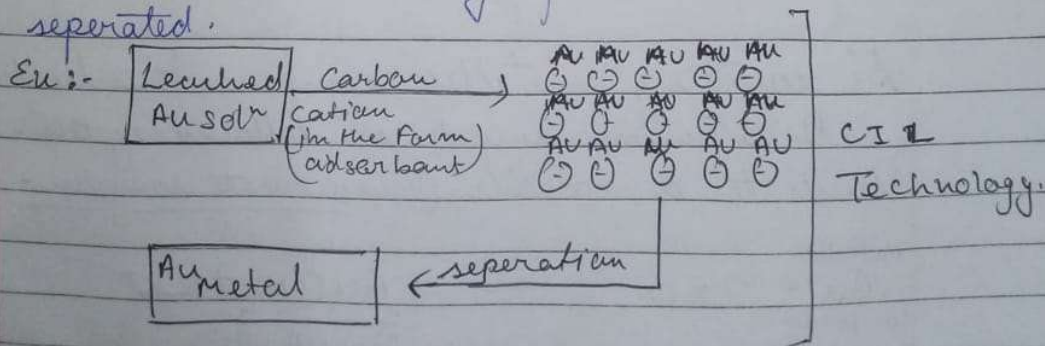 seperated.
Ex:- Leached Au solⁿ
Carbon
cation
(in the form adserbant)
AU AU AU AU AU
⊖ ⊖ ⊖ ⊖ ⊖
AU AU AU AU AU
⊖ ⊖ ⊖ ⊖ ⊖
AU AU AU AU AU
⊖ ⊖ ⊖ ⊖ ⊖
CIL
Technology.
seperation
Au Metal